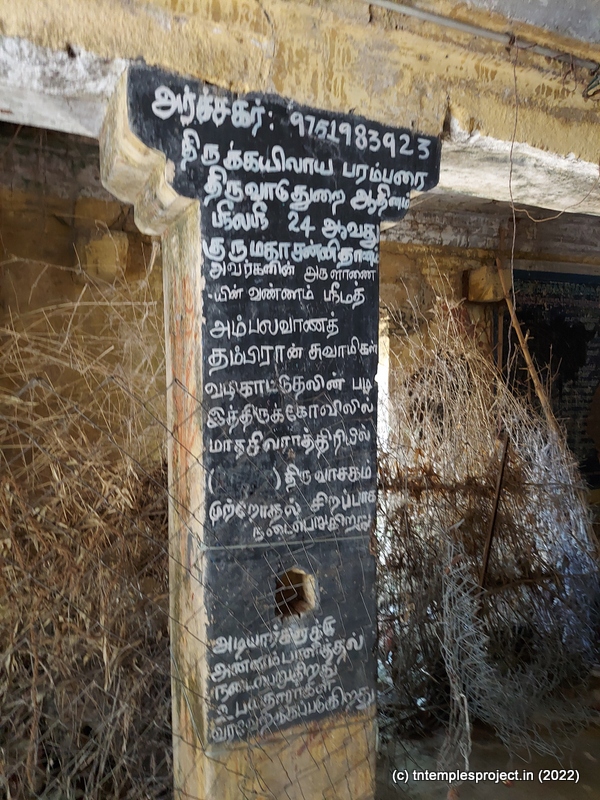 அர்ச்சகர்: 9751983923
திருக்கயிலாய பரம்பரை
திருவாதுறை ஆதினம்
24 ஆவது
குருமகா சன்னிதானம்
அவர்களின் அருளாணை
யின் வண்ணம் ஸ்ரீமத்
அம்பலவாணத்
தம்பிரான் சுவாமிகள்
வழிகாட்டுதலின் படி
இத்திருக்கோவிலில்
மாதசிவராத்திரியில்
( ) திருவாசகம்
முற்றோதல் சிறப்பாக
நடைபெறுகிறது
அடியார்களுக்கு
அன்னம்பாலிகுதல்
நடைபெறுகிறது
உபயதாரர்கள்
வரவேற்கப்படுகிறது
(c) tntemplesproject.in (2022)